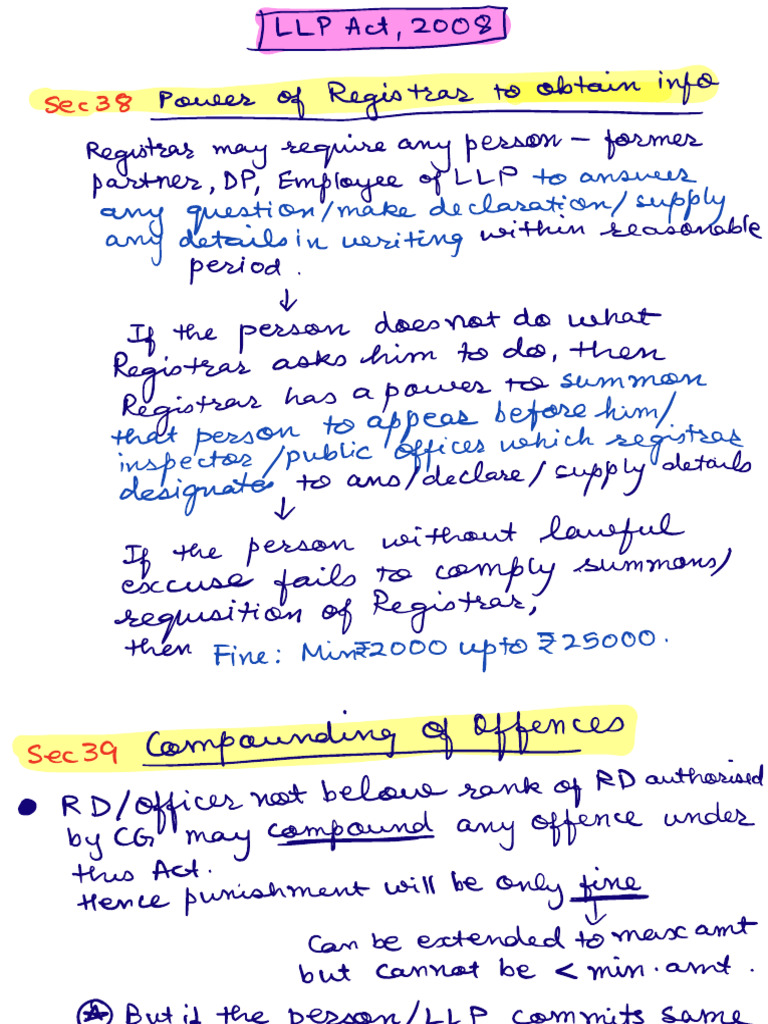 LLP Act, 2008
Sec 38 Power of Registrar to obtain info
Registrar may require any person – former
partner, DP, Employee of LLP to answer
any question/make declaration/supply
any details in writing within reasonable
period.
↓
If the person does not do what
Registrar asks him to do, then
Registrar has a power to summon
that person to appear before him/
inspector/public officer which registrar
designate to ans/declare/supply details
↓
If the person without lawful
excuse fails to comply summons/
requisition of Registrar,
then Fine: Min ₹2000 upto ₹25000.
Sec 39 Compounding of Offences
• RD/officer not below rank of RD authorised
by CG may compound any offence under
this Act.
Hence punishment will be only fine
↓
Can be extended to max amt
but cannot be < min. amt.
But if the person/LLP commits same